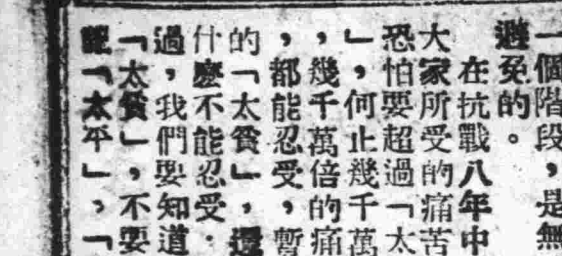 一個階段，是無
避免的。
在抗戰八年中
大家所受的痛苦
恐怕要超過「太
」，何止幾千萬
，幾千萬倍的痛
，都能忍受，暫
的「太貧」，還
什麼不能忍受．
過，我們要知道
「太貧」，不要
「太平」，「